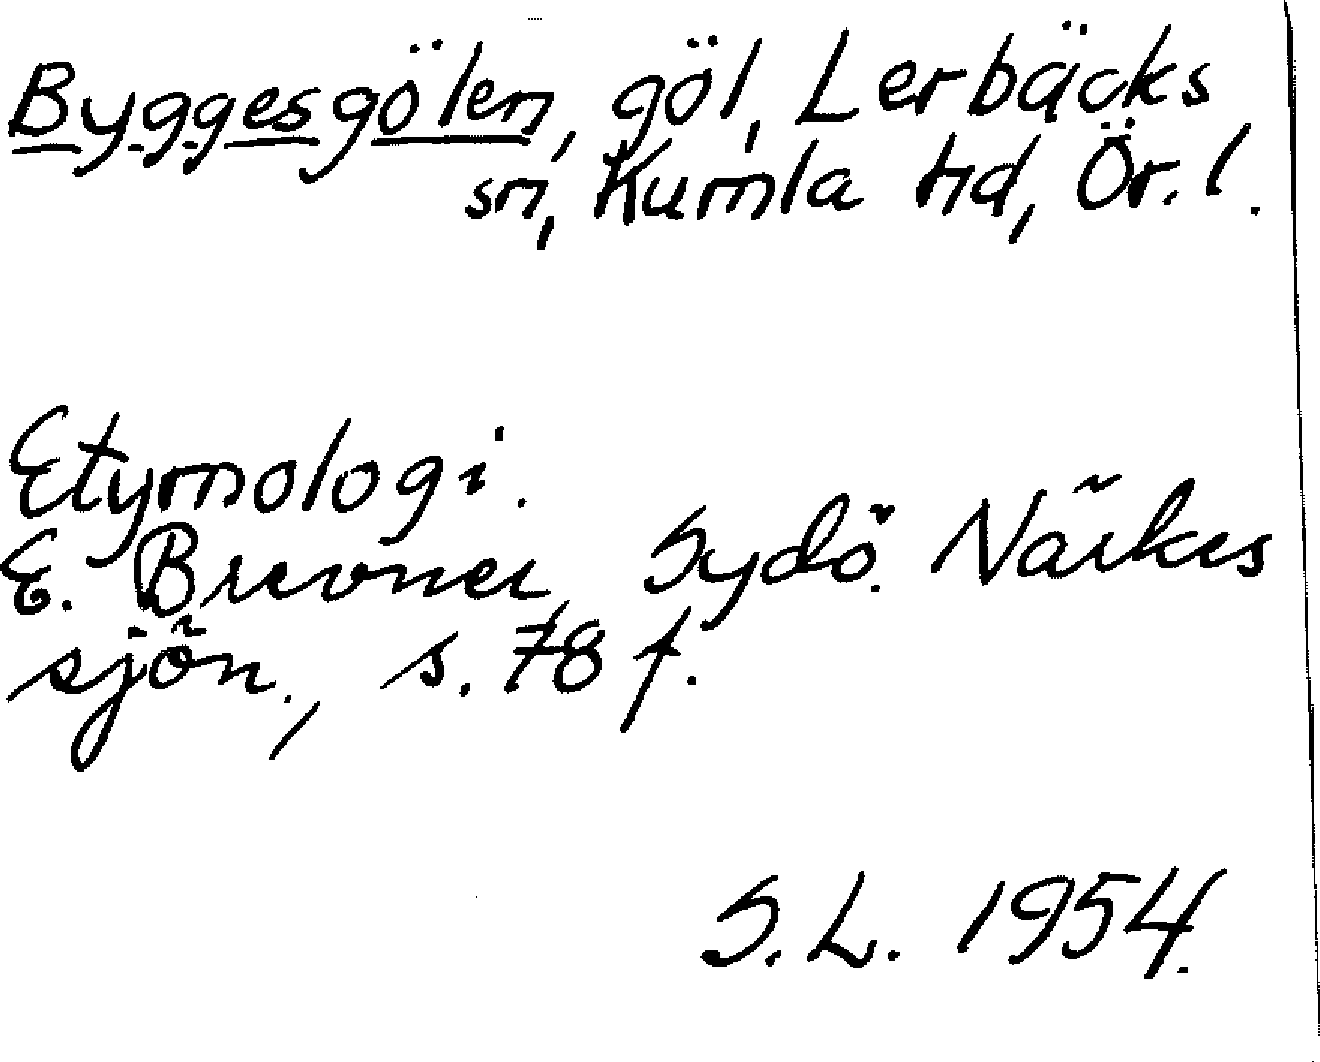 Byggesgölen, göl, Lerbäcks
sn, Kumla hd, Ör. l.
Etymologi.
E. Brevner, Sydö. Närkes
sjön., s. 78 f.
S. L. 1954.